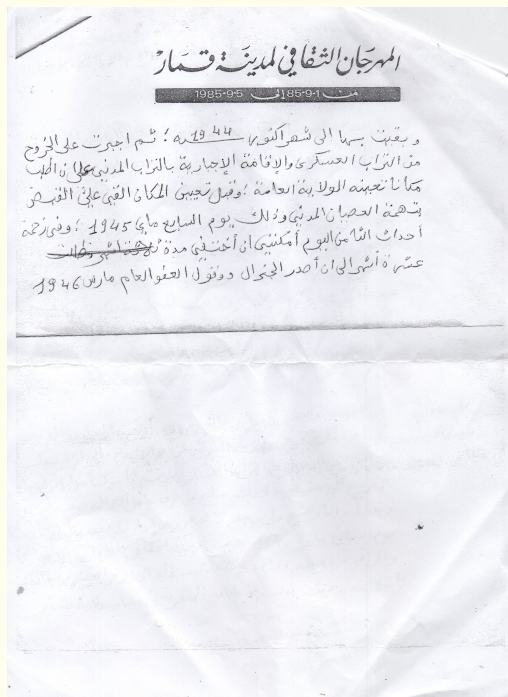 المهرجان الثقافي لمدينة قمار
من 1-9-85 إلى 5-9-1985
وبقيت بها الى شهر اكتوبر 1944 ؛ ثم اجبرت على الخروج
من التراب العسكري والإقامة الإجبارية بالتراب المدني على ان اطلب
مكانا تعينه الولاية العامة ؛ وقبل تعيين المكان القي علي القبض
بتهمة العصيان المدني وذلك يوم السابع ماي 1945 ؛ وفي زحمة
أحداث الثامن اليوم أمكنني ان أختفي مدة
عشرة أشهر الى ان أصدر الجنرال دوقول العفو العام مارس 1946